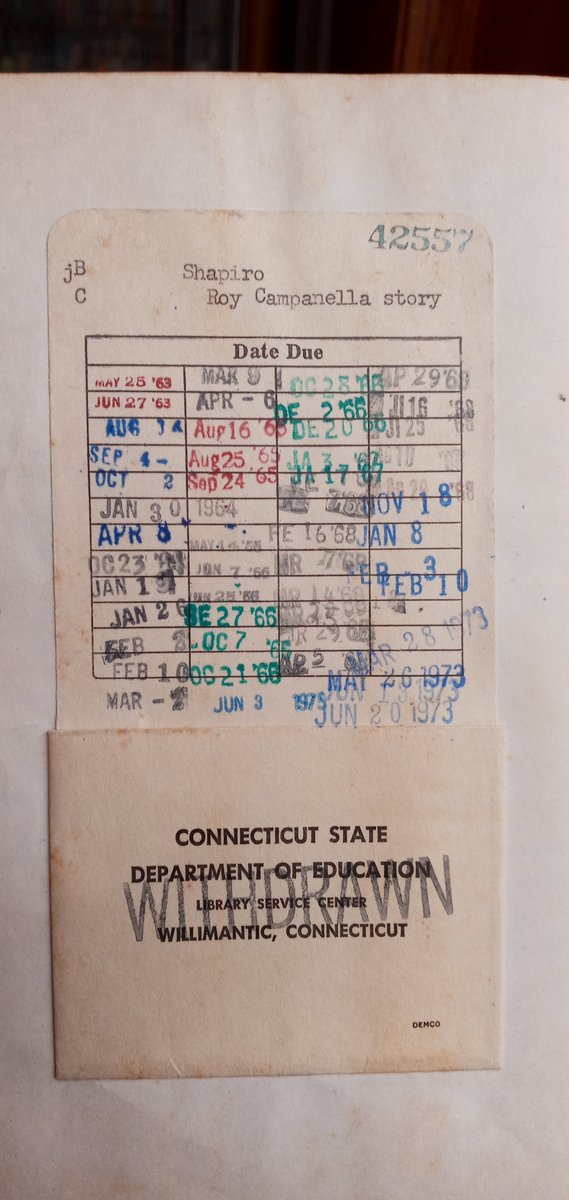 42557
jB Shapiro
C Roy Campanella story
Date Due
MAY 25 '63 MAR 9 OC 28 '66 AP 29 '68
JUN 27 '63 APR - 6 DE 2 '66 JI 16 '68
AUG 14 Aug 16 '65 DE 20 '66 JI 25 '68
SEP 4 - Aug 25 '65 JA 3 '67
OCT 2 Sep 24 '65 JA 17 '67
JAN 30 1964 NOV 18
APR 8 FE 16 '68 JAN 8
OC 23 JUN 7 '66 MR 7 '68 FEB - 3
JAN 1 JUN 25 '66 MR 14 '68 FEB 10
JAN 26 SE 27 '66
FEB 2 - OC 7 '66 MR 29 '68 MAR 28 1973
FEB 10 OC 21 '66 AP 5 MAY 26 1973
MAR - 2 JUN 3 1975 JUN 20 1973
CONNECTICUT STATE
DEPARTMENT OF EDUCATION
WITHDRAWN
LIBRARY SERVICE CENTER
WILLIMANTIC, CONNECTICUT
DEMCO